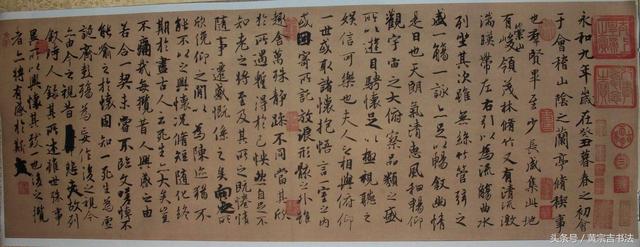 永和九年歲在癸丑暮春之初會
于會稽山陰之蘭亭脩稧事
也羣賢畢至少長咸集此地
有崇山峻領茂林脩竹又有清流激
湍暎帶左右引以為流觴曲水
列坐其次雖無絲竹管弦之
盛一觴一詠亦足以暢敘幽情
是日也天朗氣清惠風和暢仰
觀宇宙之大俯察品類之盛
所以遊目騁懷足以極視聽之
娛信可樂也夫人之相與俯仰
一世或取諸懷抱悟言一室之內
或因寄所託放浪形骸之外雖
趣舍萬殊靜躁不同當其欣
於所遇蹔得於己怏然自足不
知老之將至及其所之既惓情
隨事遷感慨係之矣向之所
欣俛仰之間以為陳迹猶不
能不以之興懷況脩短隨化終
期於盡古人云死生亦大矣豈
不痛哉每攬昔人興感之由
若合一契未嘗不臨文嗟悼不
能喻之於懷固知一死生為虛
誕齊彭殤為妄作後之視今
亦由今之視昔悲夫故列
敘時人錄其所述雖世殊事
異所以興懷其致一也後之攬
者亦將有感於斯文
头条号/黄宗吉书法